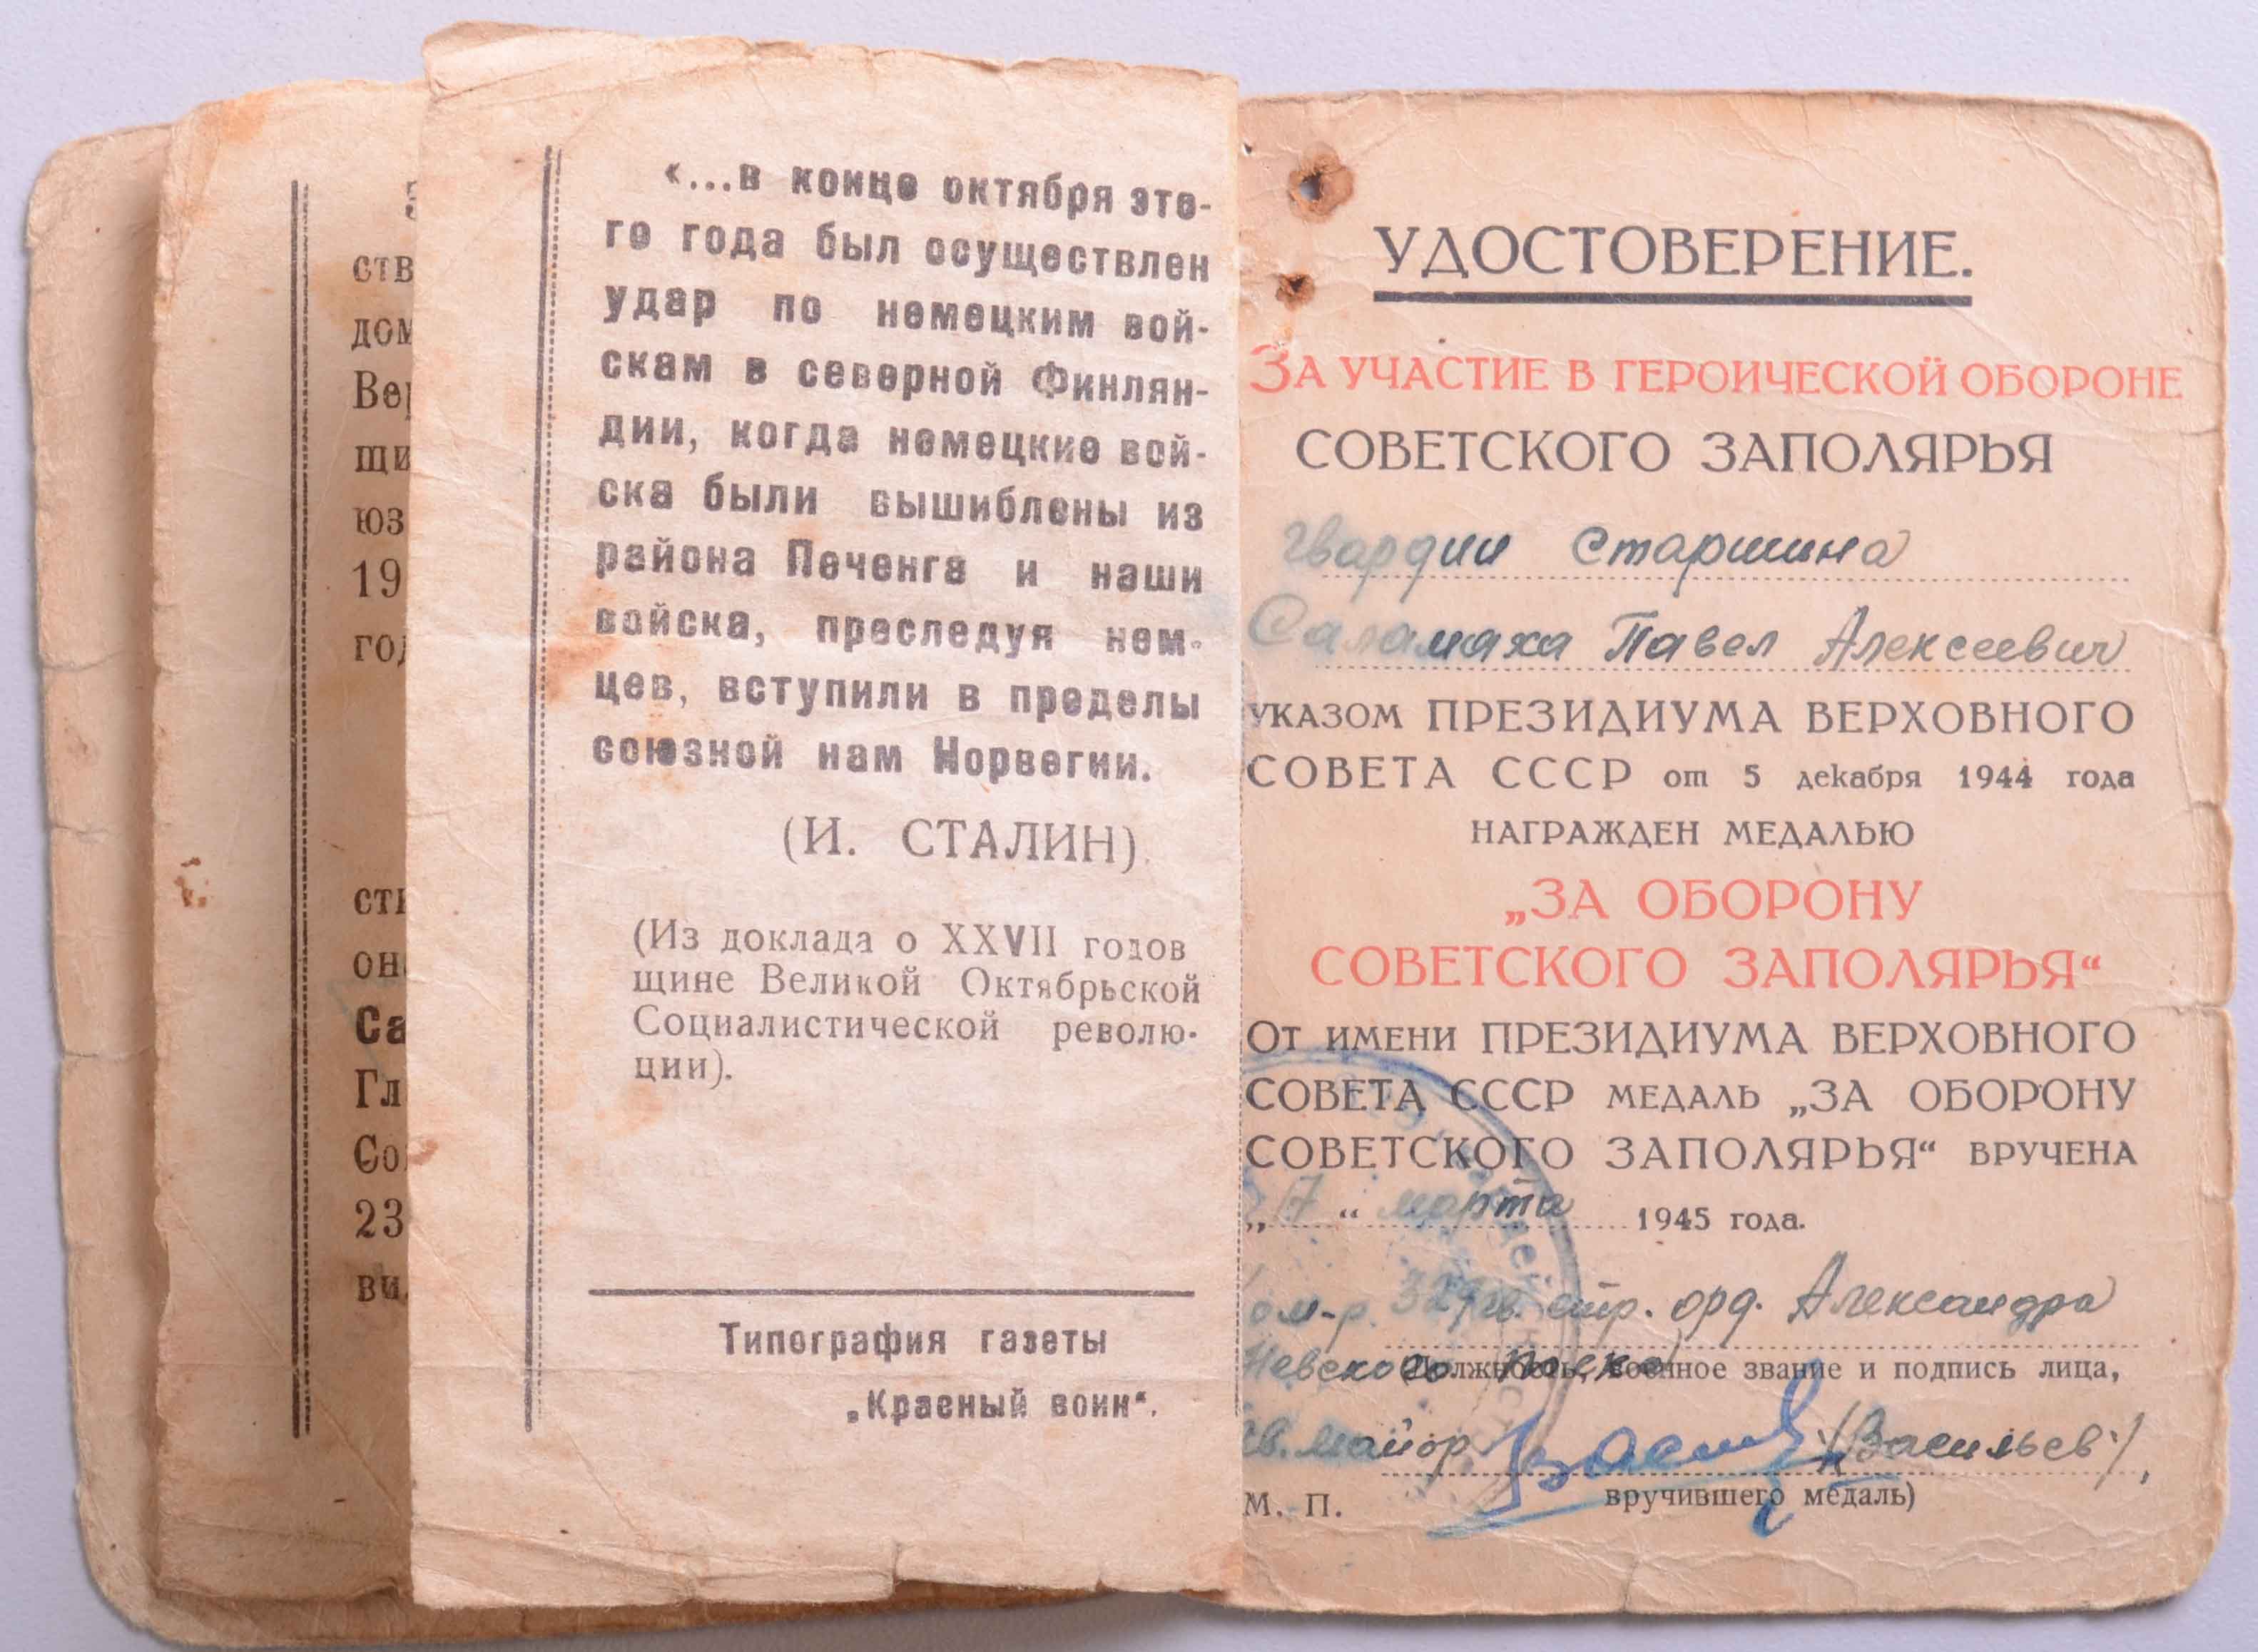 З
ств
дом
Вер
щи
юз
19
год
сти
она
Са
Гл
Со
23
ви
«...в конце октября это-
го года был осуществлен
удар по немецким вой-
скам в северной Финлян-
дии, когда немецкие вой-
ска были вышиблены из
района Печенга и наши
войска, преследуя нем-
цев, вступили в пределы
союзной нам Норвегии.
(И. СТАЛИН)
(Из доклада о XXVII годов
щине Великой Октябрьской
Социалистической револю-
ции).
Типография газеты
„Красный воин“.
УДОСТОВЕРЕНИЕ.
ЗА УЧАСТИЕ В ГЕРОИЧЕСКОЙ ОБОРОНЕ
СОВЕТСКОГО ЗАПОЛЯРЬЯ
гвардии старшина
Саламаха Павел Алексеевич
УКАЗОМ ПРЕЗИДИУМА ВЕРХОВНОГО
СОВЕТА СССР от 5 декабря 1944 года
НАГРАЖДЕН МЕДАЛЬЮ
„ЗА ОБОРОНУ
СОВЕТСКОГО ЗАПОЛЯРЬЯ“
ОТ ИМЕНИ ПРЕЗИДИУМА ВЕРХОВНОГО
СОВЕТА СССР МЕДАЛЬ „ЗА ОБОРОНУ
СОВЕТСКОГО ЗАПОЛЯРЬЯ“ ВРУЧЕНА
„17“ марта 1945 года.
Ком-р. гв. стр. орд. Александра
Невского полка
(Должность, военное звание и подпись лица,
гв. майор (Васильев)
М. П. вручившего медаль)